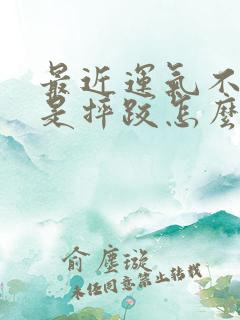 最近運氣不
是摔跤怎麼
俞塵璇
未经同意禁止转载